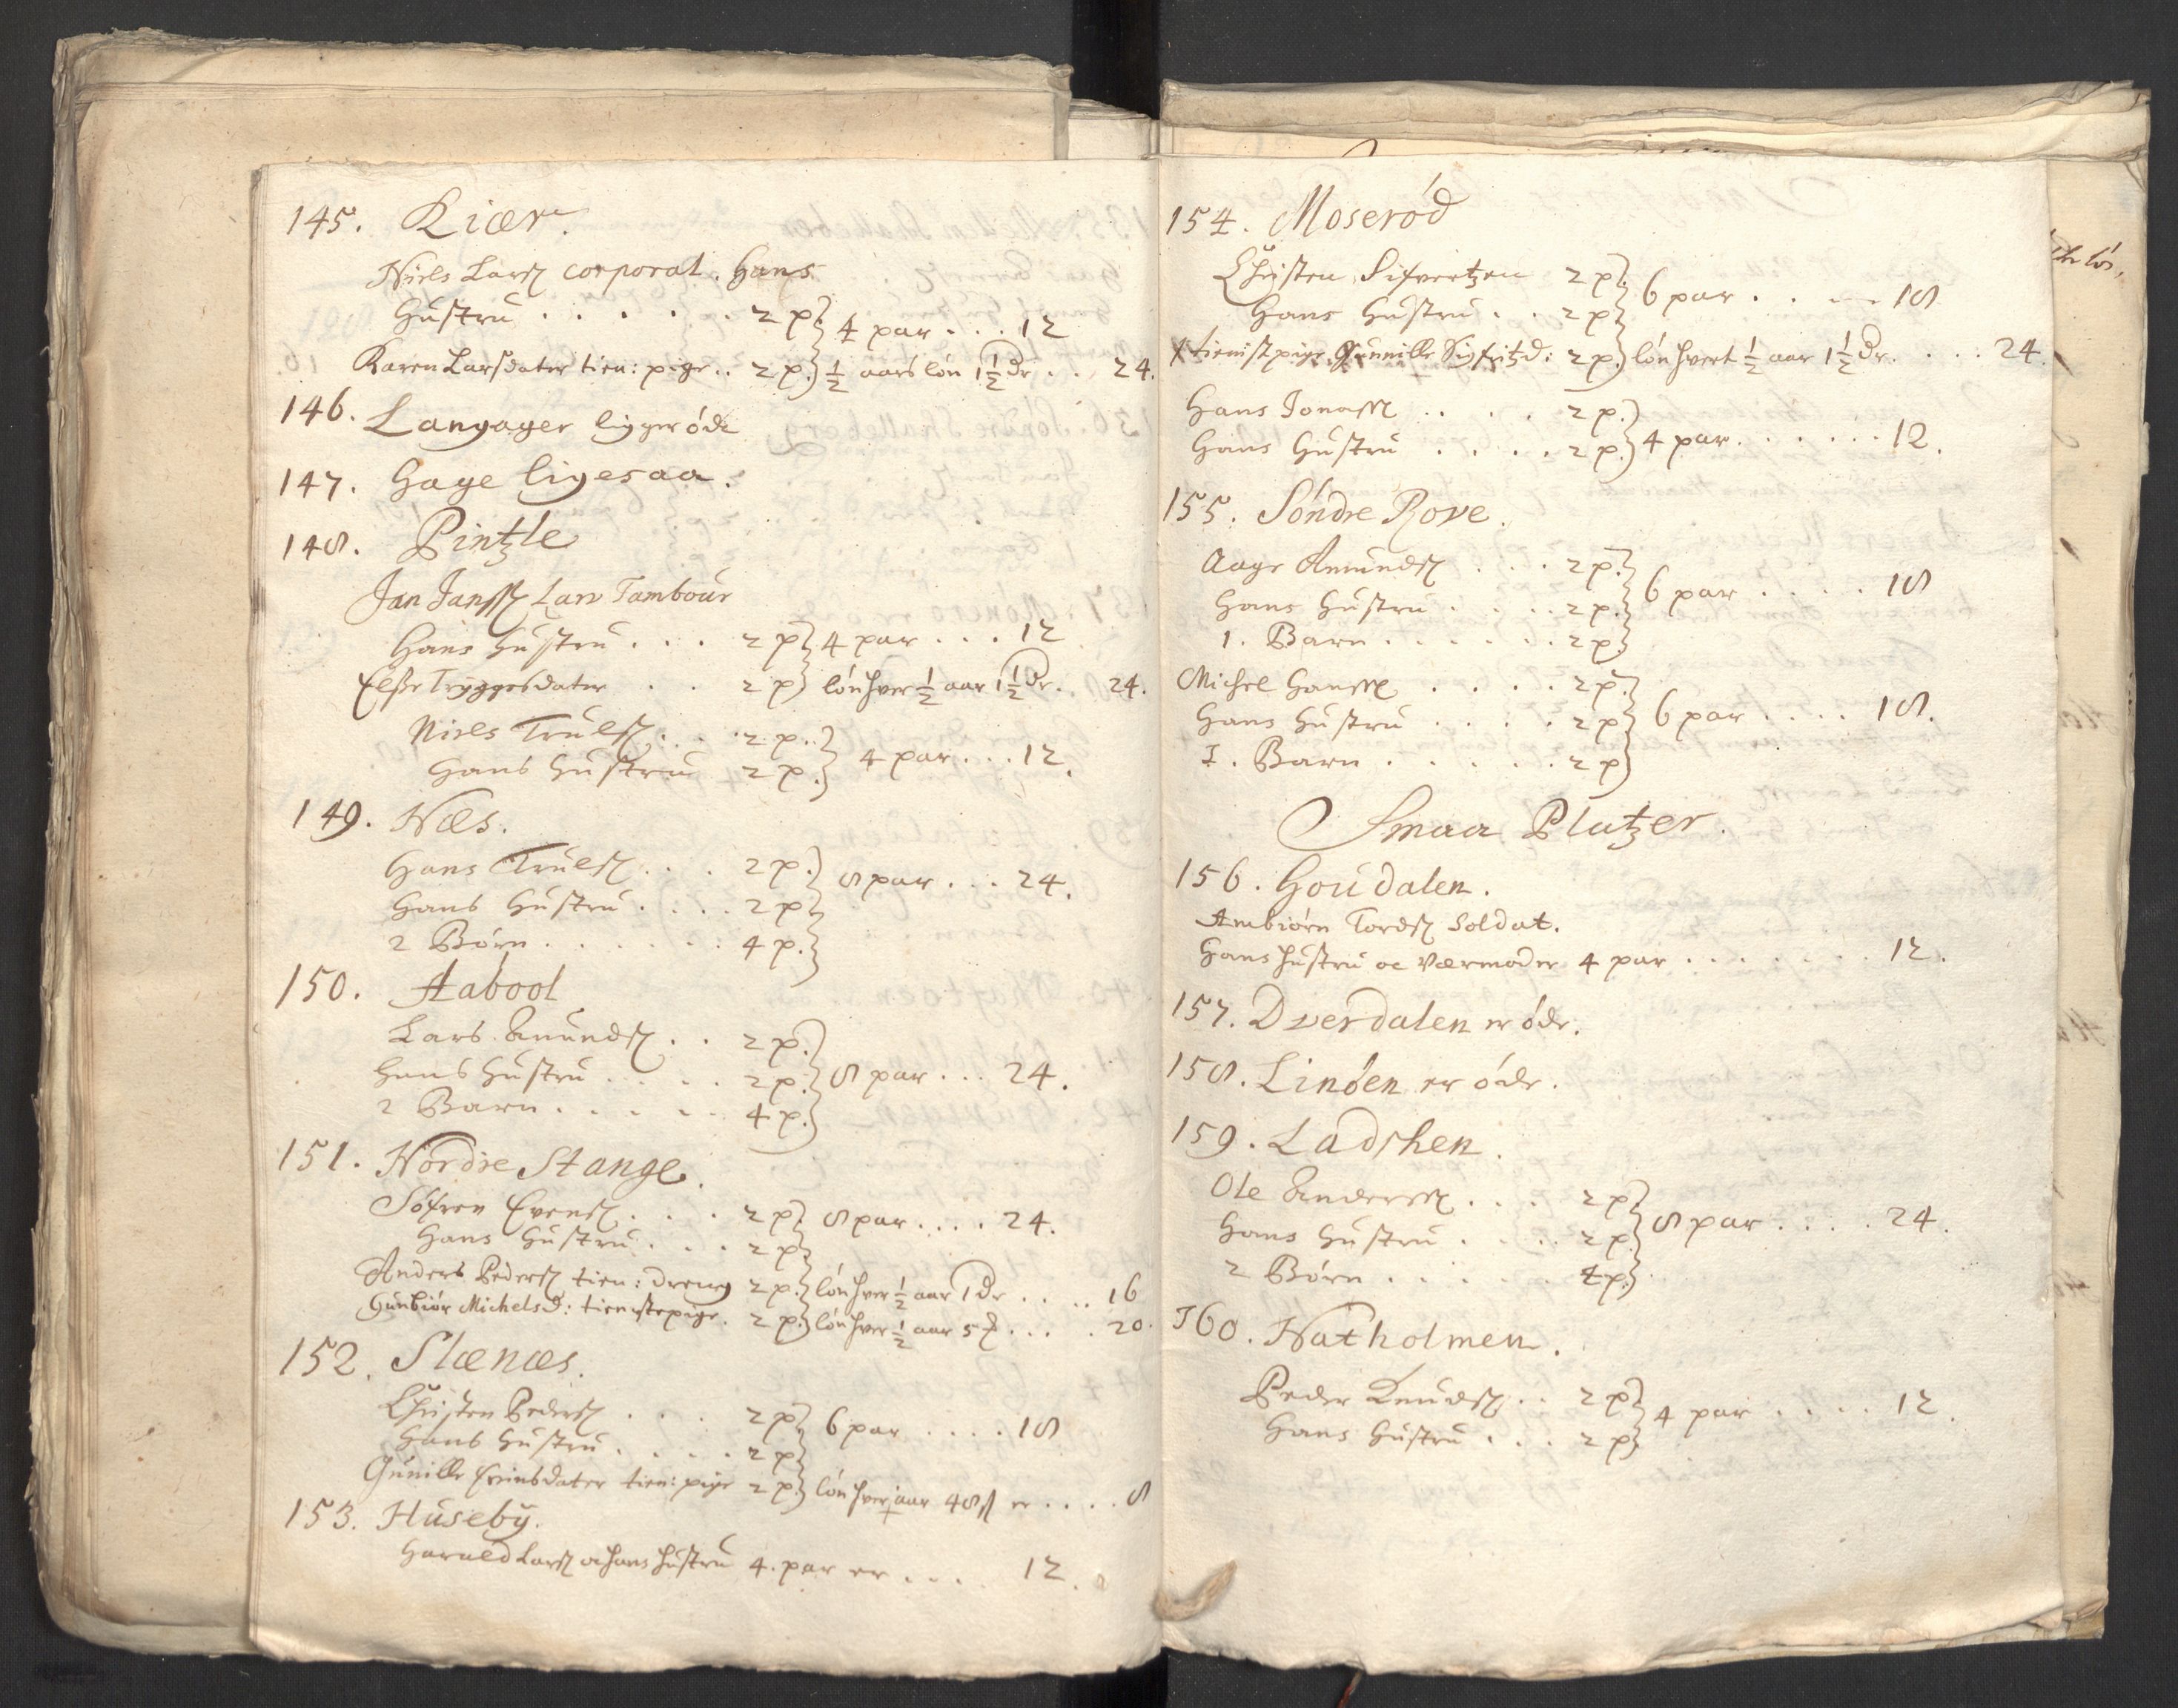 145. Kiær.
Niels Larsz corporal. Hans
Hustru . . . . . . 2 p. 4 par . . . 12
Karen Larsdater tien: pige .. 2 p. ½ aars lón 1½ dr . . 24.
146. Langager ligger óde
147. Hage ligesaa.
148. Pintzle
Jan Janssz Land Tambour
Hans Hustru . . . 2 p 4 par . . . 12
Elsse Tryggesdater . . 2 p lón hver ½ aar 1½ dr. 24.
Niels Trulsz . . . 2 p.
Hans Hustru 2 p. 4 par . . . 12.
149. Næs.
Hans Trulsz . . . 2 p.
Hans Hustru . . . . 2 p 8 par . . . 24.
2 Börn . . . . . . 4 p.
150. Aabool
Lars Anundsz . . 2 p.
Hans Hustru . . . . 2 p. 8 par . . . 24.
2 Barn . . . . . 4 p.
151. Nordre Stange.
Sófren Evensz . . . 2 p. 8 par . . . . 24.
Hans Hustru . . . 2 p
Anders Pedersz tien: dreng 2 p. lón hver ½ aar 1 dr . . . . 16
Gunbiór Michelsd: tienistepige . 2 p. lón hver ½ aar 5 . . . . 20.
152. Slænæs.
Christen Pedersz . . . 2 p 6 par . . . . 18
Hans Hustru . . . . 2 p
Gunille Svendsdater tien: pige 2 p. lón hver aar 48 ß er . . . . 8
153. Huseby.
Harald Larsz oc hans Hustru 4. par er . . . . 12.
154. Moseród
Christen Sifvertzen 2 p.
Hans Hustru . . 2 p 6 par . . . 18
tienistpige Gunnille Sigfritzd: 2 p. lón hvert ½ aar 1½ dr. . . . 24.
Hans Jonassz . . . . 2 p.
Hans Hustru . . . . 2 p. 4 par . . . . . . 12.
155. Sóndre Rove.
Aage Amundsz . . . 2 p.
Hans Hustru . . . . 2 p. 6 par . . . . 18
1. Barn . . . . . . 2 p
Michel Hanssz . . . . 2 p.
Hans Hustru . . . . 2 p 6 par . . . . 18.
I. Barn . . . . . . 2 p
Smaa Platzer.
156. Goudalen.
Ambiórn Tordsz Soldat.
Hans Hustru oc Værmoder 4 par . . . . . . . 12.
157. Dverdalen er óde.
158. Linóen er óde.
159. Ladshen.
Ole Anderssz . . . . 2 p
Hans Hustru . . . . 2 p. 8 par . . . . 24.
2 Börn . . . . . 4 p.
I60. Natholmen.
Peder Knudsz . . 2 p
Hans Hustru . . . 2 p 4 par . . . . 12.